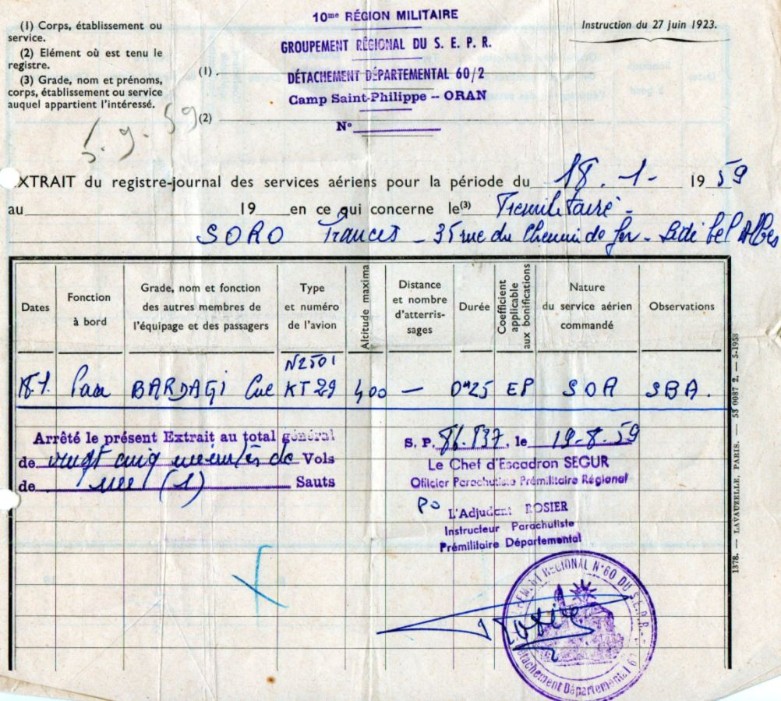 (1) Corps, établissement ou service.
(2) Elément où est tenu le registre.
(3) Grade, nom et prénoms, corps, établissement ou service auquel appartient l'intéressé.
5.9.59
10me RÉGION MILITAIRE
GROUPEMENT RÉGIONAL DU S. E. P. R.
(1)
DÉTACHEMENT DÉPARTEMENTAL 60/2
Camp Saint-Philippe – ORAN
(2)
N°
Instruction du 27 juin 1923.
XTRAIT du registre-journal des services aériens pour la période du 18.1- 19 59
au 19 en ce qui concerne le(3)
SORO 35 rue du Chemin de fer - Sidi bel Abbes
Dates
Fonction à bord
Grade, nom et fonction des autres membres de l'équipage et des passagers
Type et numéro de l'avion
Altitude maxima
Distance et nombre d'atterris-sages
Durée
Coefficient applicable aux bonifications
Nature du service aérien commandé
Observations
18.1. BARDAGI N2501 KT 29 400 — 0h25 EP SOA SBA.
Arrêté le présent Extrait au total général
de vingt cinq minutes de Vols
de une (1) Sauts
S. P. 86.837, le 19-8.59
Le Chef d'Escadron SEGUR
Officier Parachutiste Prémilitaire Régional
PO L'Adjudant ROSIER
Instructeur Parachutiste
Prémilitaire Départemental
RÉGIONAL N°60 DU S.E.P.R.
Détachement Départemental
1378. — LAVAUZELLE, PARIS. — 53 0087 2. — 5-1958